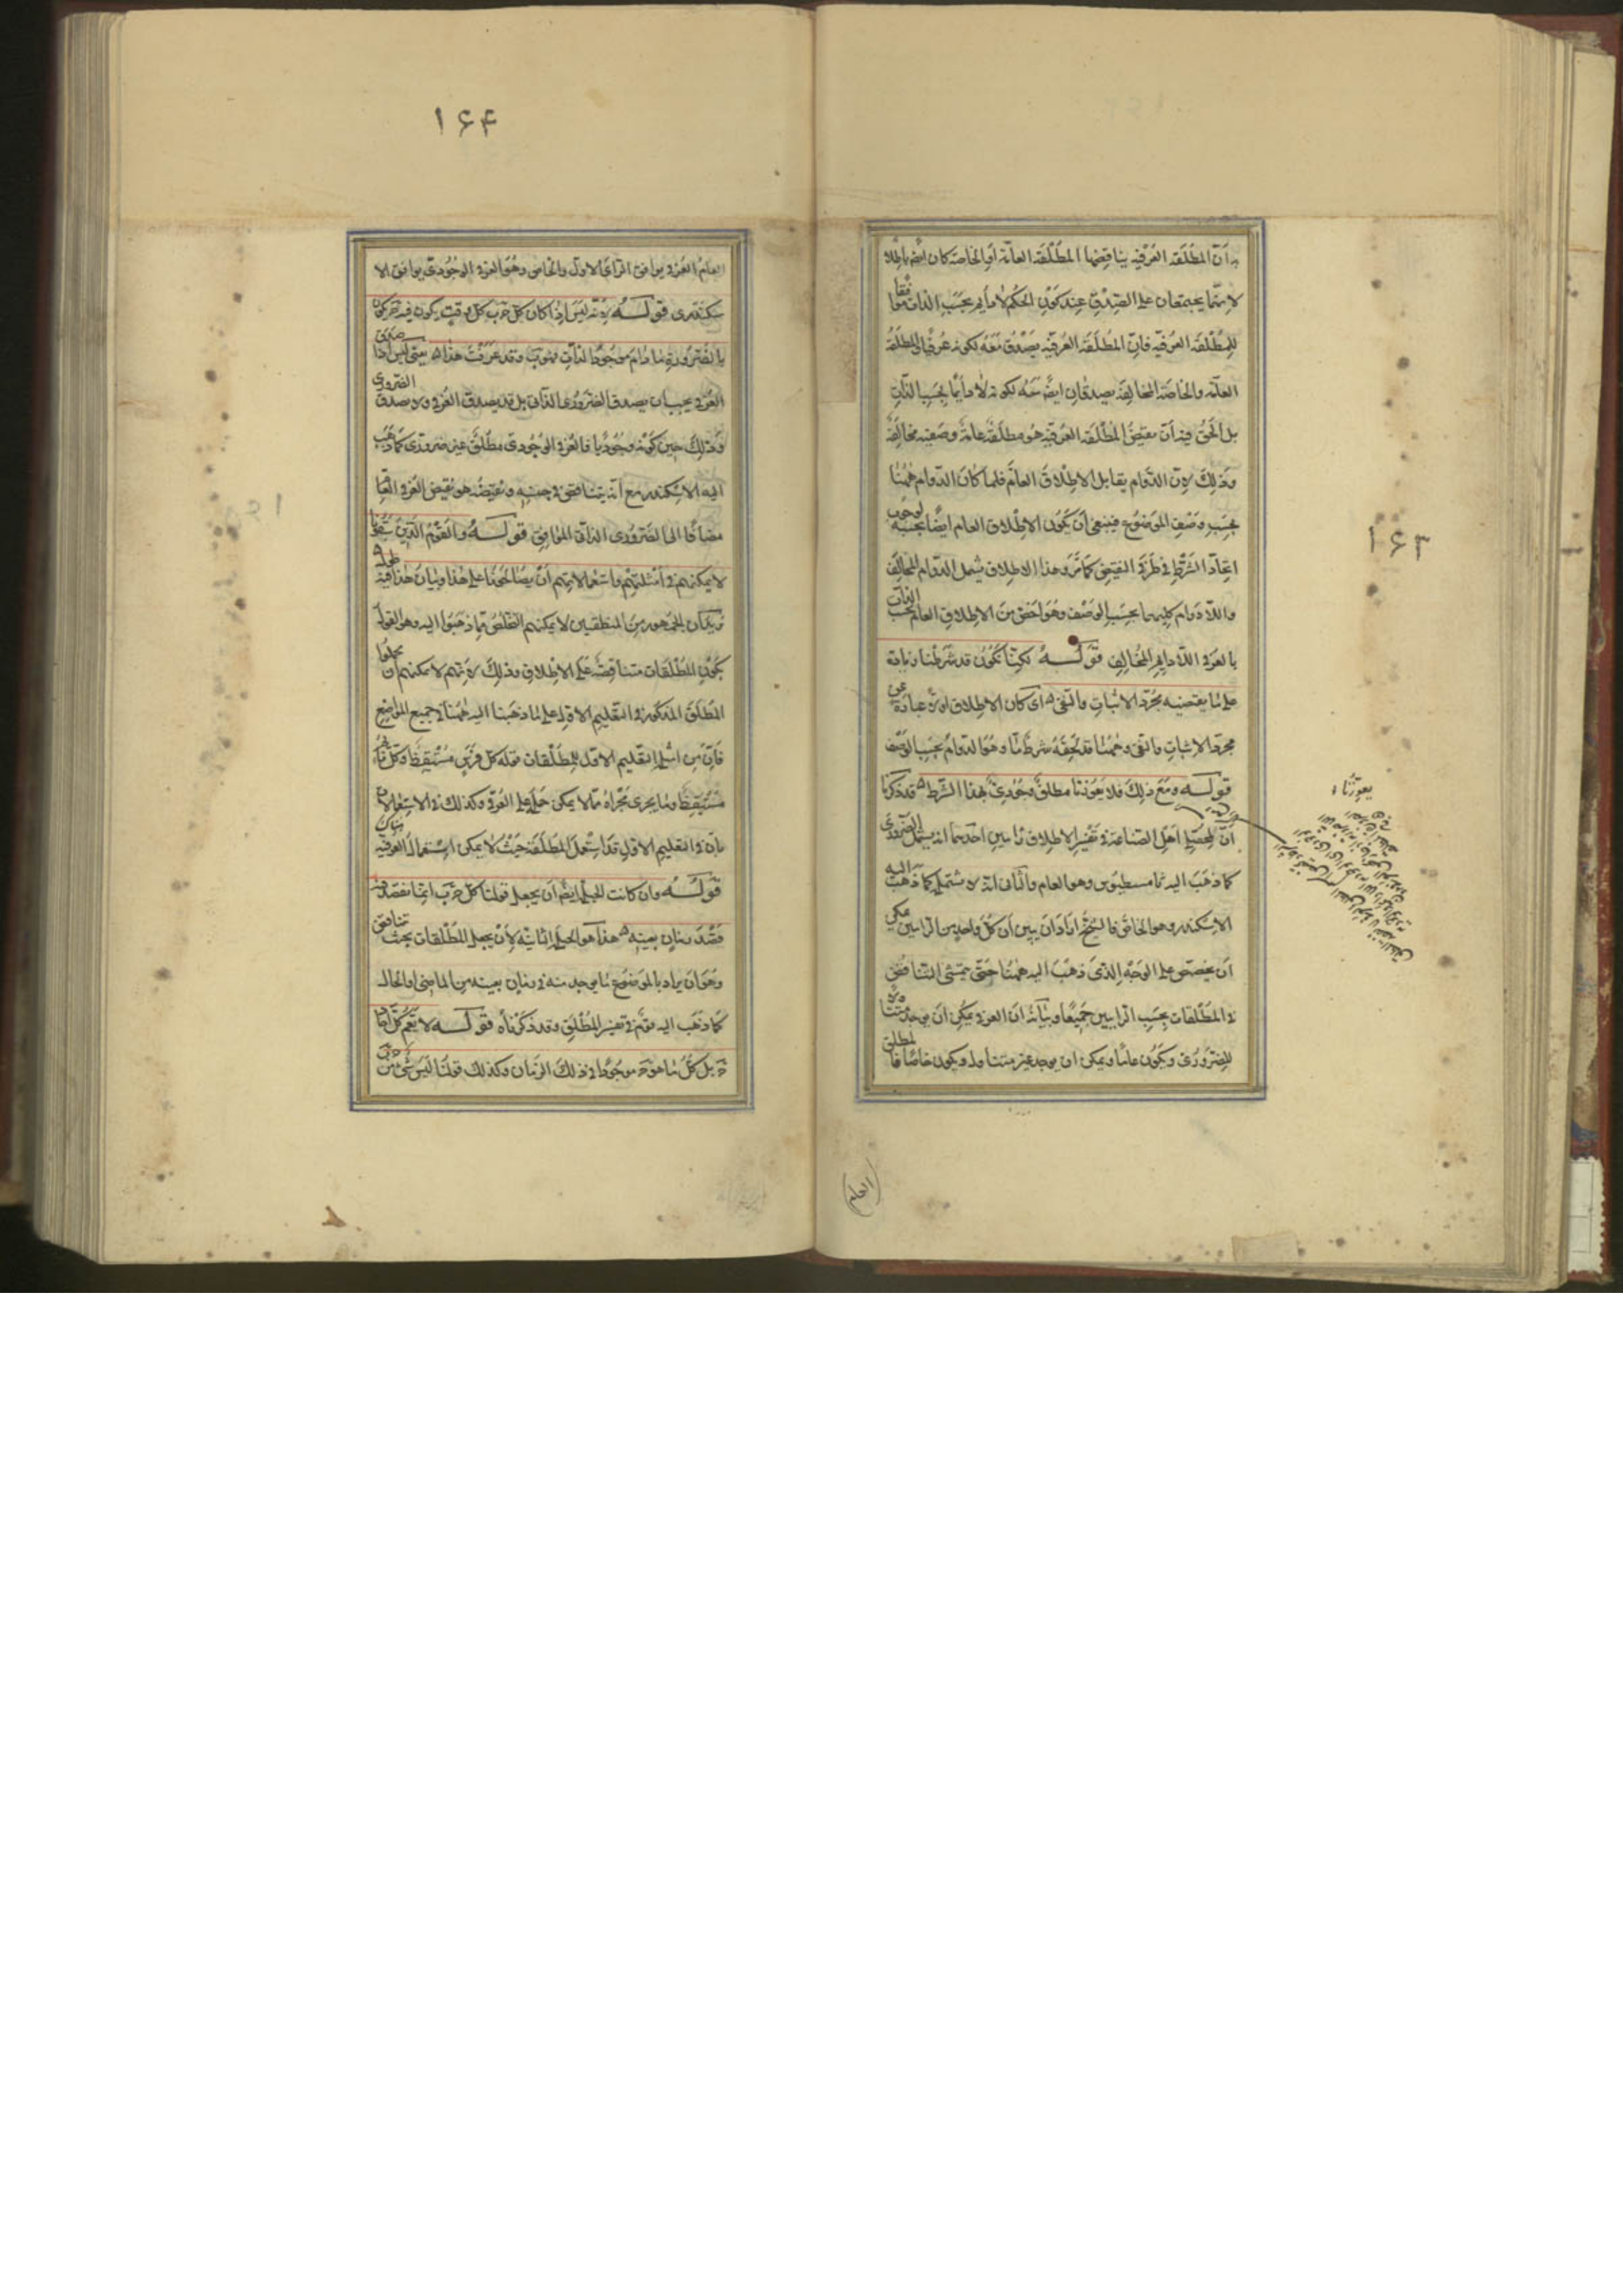 ان المطلقه العرفيه يناقضها المطلقة العامّة او الخاصة كان ايضا باطلا
لانهما يجتمعان على الصدق عند كون الحكم لا دايم بحسب الذات موافقا
للمطلقه العرفيه فان المطلقة العرفيه يصدق معه لكونه عرفيا والمطلقة
العامّه والخاصة المخالفة يصدقان ايضا معه لكونه لا دايما بحسب الذات
بل الحق فيه ان نقيض المطلقة العرفيه هو مطلقة عامة وصفيه مخالفة
وذلك لان الدوام يقابل الاطلاق العام فلما كان الدوام ههنا
بحسب وصف الموضوع فينبغى ان يكون الاطلاق العام ايضا بحسبه لوجوب
اتحاد الشرط فى طرفى النقيض كما مر وهذا الاطلاق يشمل الدوام المخالف
واللادوام كليهما بحسب الوصف وهو اخص من الاطلاق العام بحسب الذات
بالعرفى اللادايم المخالف قوله لكنا نكون قد شرطنا زيادة
على ما يقتضيه مجرد الاثبات والنفى اى كان الاطلاق اولا عبارة عن
مجرد الاثبات والنفى وههنا قد لحقه شرط ما وهو الدوام بحسب الوصف
قوله ومع ذلك فلا يعوزنا مطلق وجودى بهذا الشرط قد ذكرنا
ان لمحصلى اهل الصناعة فى تفسير الاطلاق رايين احدهما انه يشمل الضرورى
كما ذهب اليه ثامسطيوس وهو العام والثانى انه لا يشتمله كما ذهب اليه
الاسكندر وهو الخاص فالشيخ اراد ان يبين ان كل واحد من الرايين يمكن
ان يخصص على الوجه الذى ذهب اليه ههنا حتى يتمشى التناقض
فى المطلقات بحسب الرايين جميعا وبيانه ان العرفى يمكن ان يوجد متناولا
للضرورى ويكون عاما ويمكن ان يوجد غير متناول ويكون خاصا فالمطلق
يعوزنا
العام
۱۶۳
۱۶۴
العام العرفى يوافق الراى الاول والخاص وهو العرفى الوجودى يوافق الا
سكندرى قوله لانه ليس اذا كان كل ج ب كل وقت يكون فيه ج يكون
بالضرورة ما دام موجود الذات فهو ب وقد عرفت هذا يعنى ليس اذا صدق
العرفى يجب ان يصدق الضرورى الذاتى بل قد يصدق العرفى ولا يصدق الضرورى
وذلك حين كونه وجوديا فالعرفى الوجودى مطلق غير ضرورى كما ذهب
اليه الاسكندر مع انه يتناقض فى جنسه ونقيضه هو نقيض العرفى العام
مضافا الى الضرورى الذاتى الموافق قوله والقوم الذين سبقونا
لا يمكنهم فى امثلتهم واستعمالاتهم ان يصالحونا على هذا وبيان هذا فيه طول
يريد ان الجمهور من المنطقيين لا يمكنهم التخلص مما ذهبوا اليه وهو القول
بكون المطلقات متناقضة على الاطلاق وذلك لانهم لا يمكنهم ان يحملوا
المطلق المذكور فى التعليم الاول على ما ذهبنا اليه ههنا فى جميع المواضع
فان من امثلة التعليم الاول للمطلقات قوله كل فرس مستيقظ وكل نائم
مستيقظ وما يجرى مجراه مما لا يمكن حمله على العرفى وكذلك فى الاستعمالات
فان فى التعليم الاول قد استعمل المطلقة حيث لا يمكن استعمال العرفيه هناك
قوله وان كانت الحيلة ايضا ان يجعل قولنا كل ج ب انما نقصد فيه
قصد زمان بعينه هذا هو الحيلة الثانية لان يجعل للمطلقات بحث تناقض
وهو ان يراد بالموضوع ما يوجد منه فى زمان بعينه من الماضى او الحال
كما ذهب اليه قوم فى تفسير المطلق وقد ذكرناه قوله لا يعم كل آحاد
ج بل كل ما هو ج موجودا فى ذلك الزمان وكذلك قولنا ليس شئ من